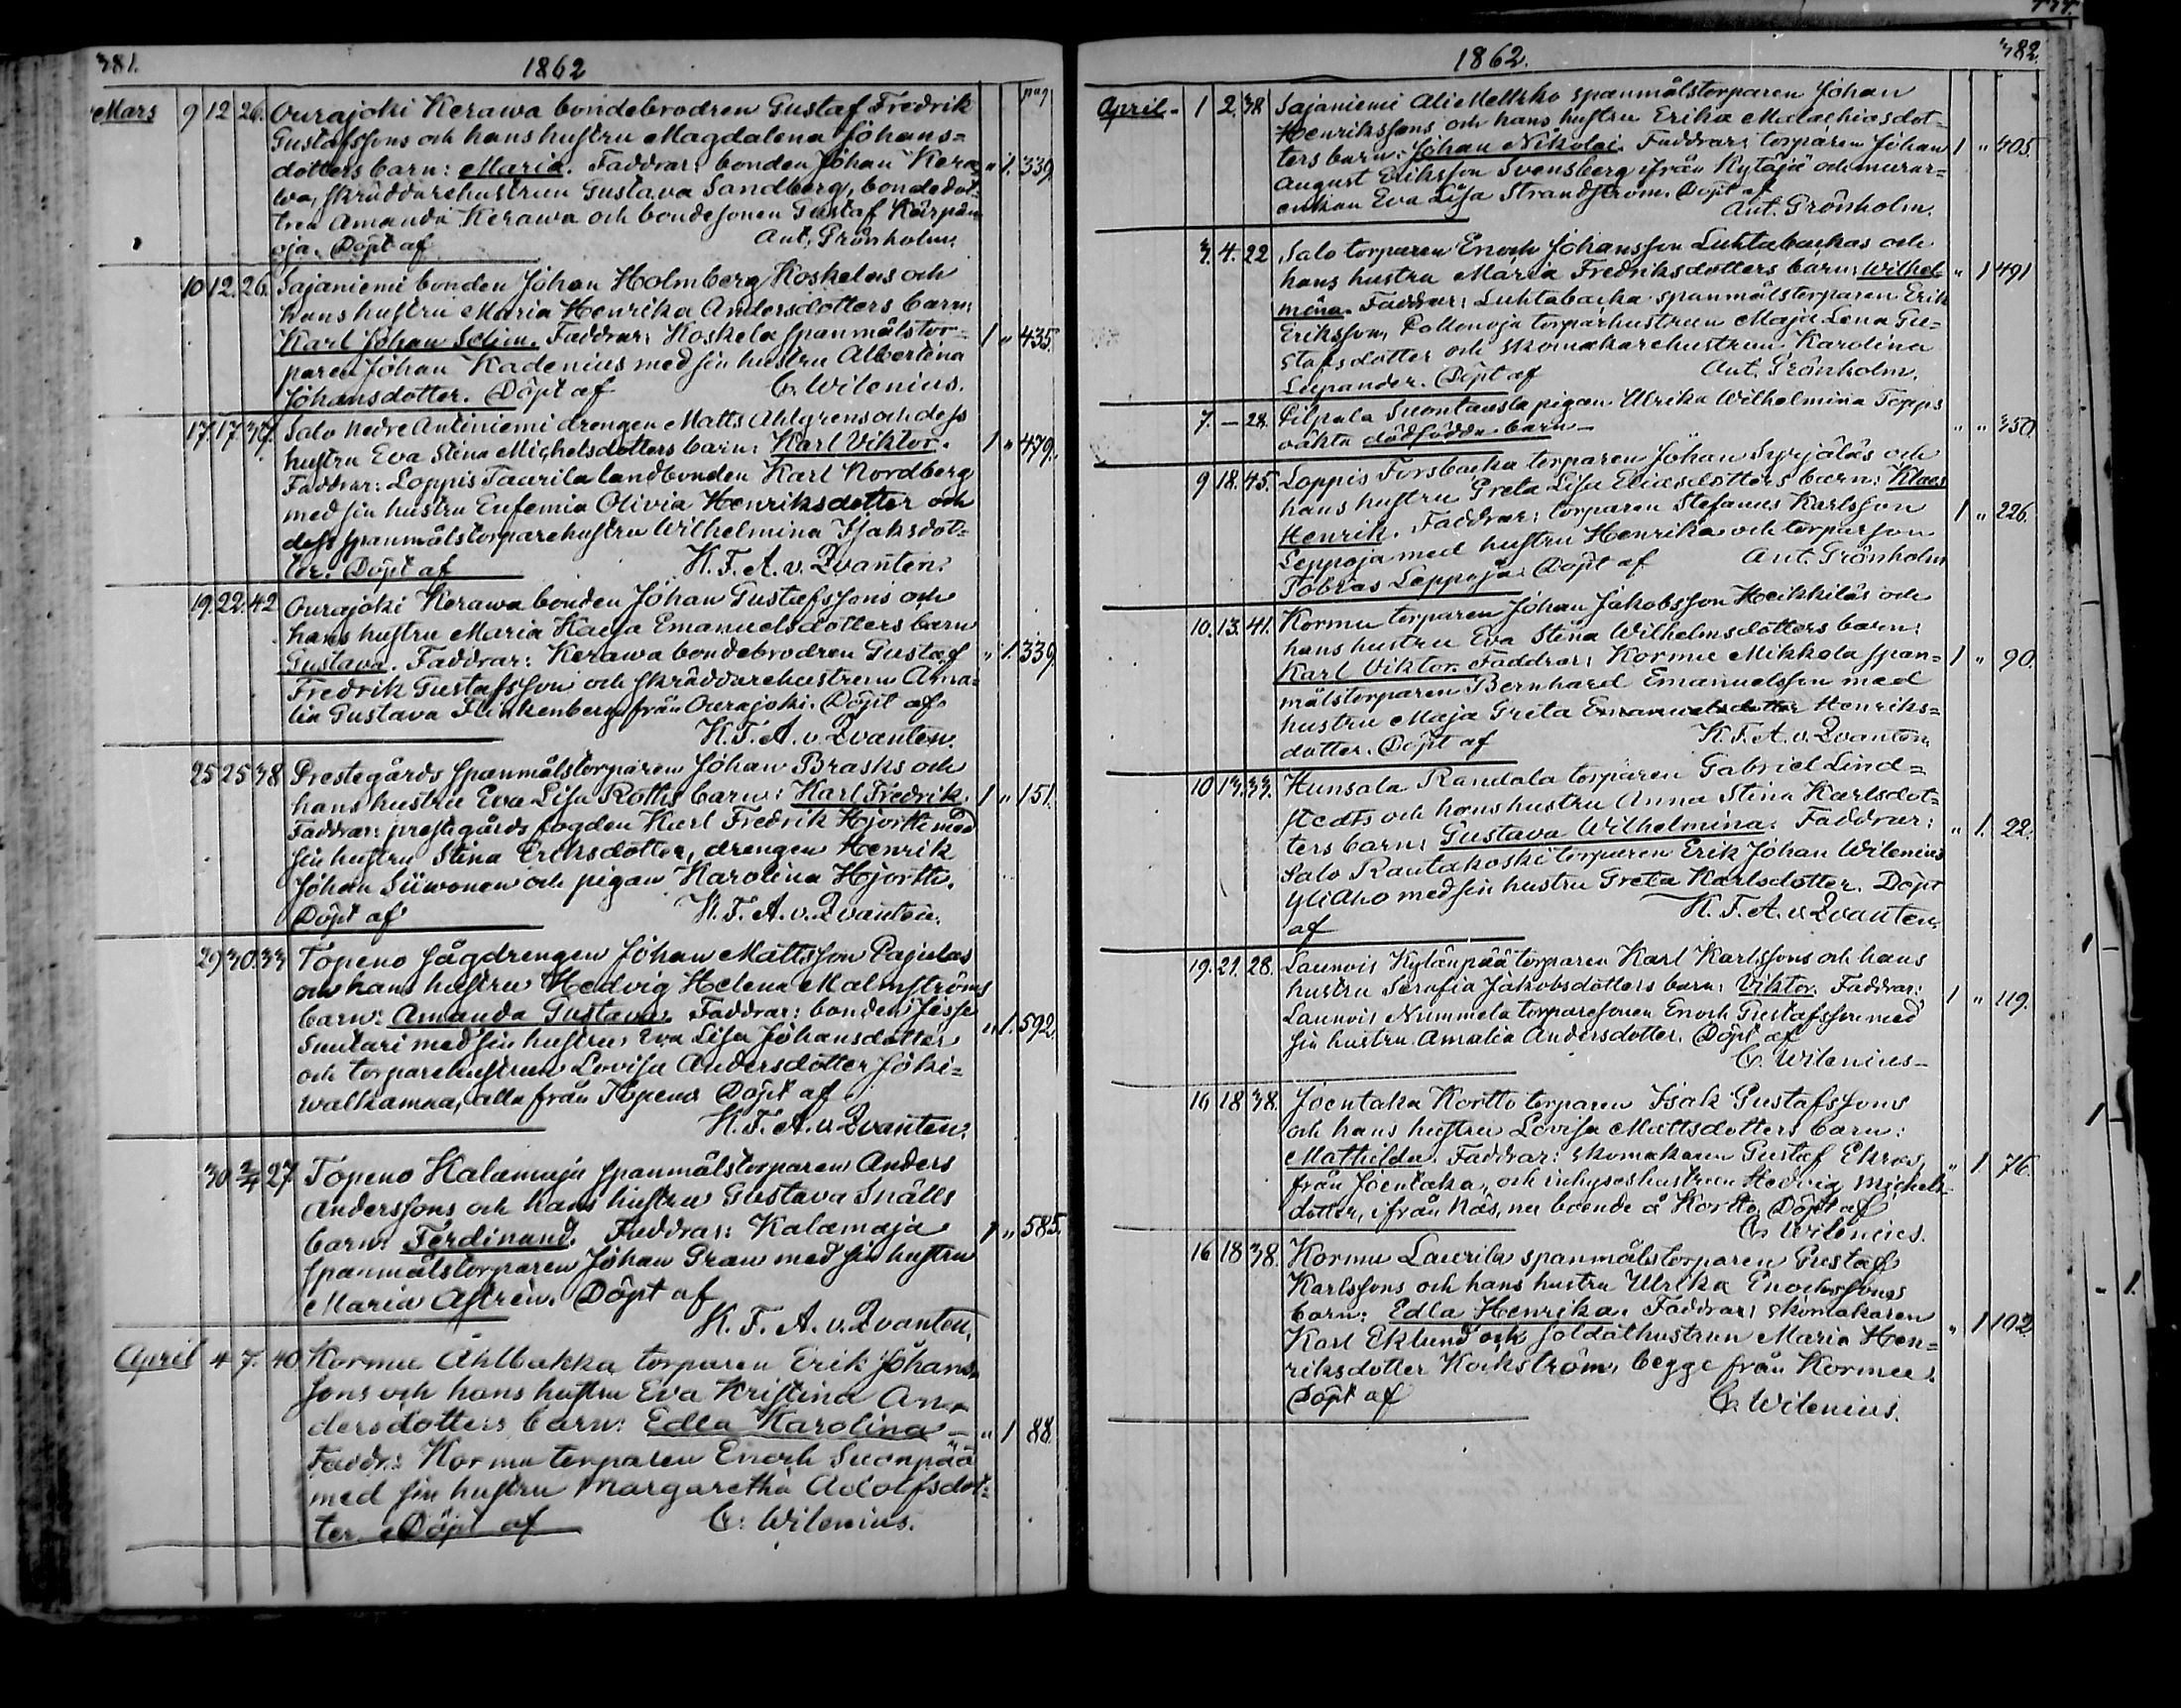 381.
1862
pag
Mars 9 12 26. Ourajoki Kerawa bondebrodren Gustaf Fredrik
Gustafssons och hans hustru Magdalena Johans=
dotters barn: Maria. Faddrar: bonden Johan Kera= " 1. 339.
wa, skräddarehustrun Gustava Sandberg, bondedot=
tren Amanda Kerawa och bondesonen Gustaf Kärpän
oja. Döpt af Ant. Grönholm.
10 12. 26. Sajaniemi bonden Johan Holmberg Koskelas och
hans hustru Maria Henrika Andersdotters barn:
Karl Johan Selim. Faddrar: Koskela spanmålstor= 1 " 435.
paren Johan Kadenius med sin hustru Albertina
Johansdotter. Döpt af C. Wilenius.
17. 17. 37. Salo Nedre Antiniemi drengen Matts Ahlgrens och dess
hustru Eva Stina Michelsdotters barn: Karl Viktor. 1 " 479.
Faddrar: Loppis Taarila landbonden Karl Nordberg
med sin hustru Eufemia Olivia Henriksdotter och
dess spanmålstorparehustru Wilhelmina Isaksdot=
ter. Döpt af K. F. A. v. Qvanten.
19. 22. 42 Ourajoki Kerawa bonden Johan Gustafssons och
hans hustru Maria Kaisa Emanuelsdotters barn
Gustava. Faddrar: Kerawa bondebrodren Gustaf " 1. 339
Fredrik Gustafsson och skräddarehustrun Ama=
lia Gustava Flinkenberg från Ourajoki. Döpt af
K. F. A. v. Qvanten.
25 25 38 Prestegårds spanmålstorparen Johan Brasks och
hans hustru Eva Lisa Roths barn: Karl Fredrik. 1 " 151.
Faddrar: prestegårds fogden Karl Fredrik Hjorth med
sin hustru Stina Eriksdotter, drengen Henrik
Johan Siiwonen och pigan Karolina Hjorth.
Döpt af K. F. A. v. Qvanten.
29 30. 33 Topeno sågdrengen Johan Mattsson Pajulas
och hans hustru Hedvig Helena Malmströms
barn: Amanda Gustava. Faddrar: bonden Jesse
Suutari med sin hustru Eva Lisa Johansdotter " 1. 592.
och torparehustrun Lovisa Andersdotter Joki=
walkamaa, alla från Topeno Döpt af
K. F. A. v. Qvanten.
30 2/4 27 Topeno Kalamaja spanmålstorparen Anders
Anderssons och hans hustru Gustava Snälls
barn: Ferdinand. Faddrar: Kalamaja 1 " 585.
spanmålstorparen Johan Gran med sin hustru
Maria Astrén. Döpt af
K. F. A. v. Qvanten.
April 4 7. 40 Kormu Ahlbakka torparen Erik Johans
sons och hans hustru Eva Kristina An=
dersdotters barn: Edla Karolina — " 1 88.
Faddr.: Kormu torparen Enoch Suonpää
med sin hustru Margaretha Adolfsdot=
ter. Döpt af C. Wilenius.
1862.
382.
April - 1 2. 38. Sajaniemi Ali Mellkko spanmålstorparen Johan
Henrikssons och hans hustru Erika Malachiasdot=
ters barn: Johan Nikolai. Faddrar: torparen Johan 1 " 405.
August Eriksson Svensberg ifrån Kytäjä och murar=
enkan Eva Lisa Strandström. Döpt af
Ant. Grönholm.
3. 4. 22 Salo torparen Enoch Johansson Luhtabackas och
hans hustru Maria Fredriksdotters barn: Wilhel " 1 491
mina. Faddrar: Luhtabacka spanmålstorparen Erik
Eriksson, torparhustrun Maja Lena Gu=
stafsdotter och skomakarehustrun Karolina
Leepander. Döpt af Ant. Grönholm.
7. — 28. Pilpala Suontausta pigan Ulrika Wilhelmina Topps
oäkta dödfödda barn — " " 350.
9 18. 45. Loppis Forsbacka torparen Johan Syrjäläs och
hans hustru Greta Lisa Eliasdotters barn: Klaes
Henrik. Faddrar: torparen Stefanus Karlsson 1 " 226.
Leppoja med hustru Henrika och torparson
Tobias Leppoja. Döpt af Ant. Grönholm
10. 13. 41. Kormu torparen Johan Jakobsson Heikkiläs och
hans hustru Eva Stina Wilhelmsdotters barn:
Karl Viktor. Faddrar: Kormu Mikkola span= 1 " 90.
målstorparen Bernhard Emanuelsson med
hustru Maja Greta Emanuelsdotter Henriks=
dotter. Döpt af K. F. A. v. Qvanten.
10 13. 33. Hunsala Randala torparen Gabriel Lind=
stedts och hans hustru Anna Stina Karlsdot=
ters barn: Gustava Wilhelmina. Faddrar: " 1. 22.
Salo Rautakoski torparen Erik Johan Wilenius
Yliaho med sin hustru Greta Karlsdotter. Döpt
af K. F. A. v. Qvanten.
19. 21. 28. Launois Kylänpää torparen Karl Karlssons och hans
hustru Serafia Jakobsdotters barn: Viktor. Faddrar: 1 " 119.
Launois Nummela torparesonen Enoch Gustafsson med
sin hustru Amalia Andersdotter. Döpt af
C. Wilenius —
16 18 38. Joentaka Kortto torparen Isak Gustafssons
och hans hustru Lovisa Mattsdotters barn:
Mathilda. Faddrar: skomakaren Gustaf Ekroos, " 1 76.
från Joentaka, och inhyseshustrun Hedvig Michels=
dotter, ifrån Näs, nu boende å Kortto, Döpt af
C. Wilenius.
16 18 38. Kormu Laurila spanmålstorparen Gustaf
Karlssons och hans hustru Ulrika Enochssons
barn: Edla Henrika. Faddrar: skomakaren " 1 102
Karl Eklund och soldathustrun Maria Hen=
riksdotter Kockström, begge från Kormu.
Döpt af C. Wilenius.